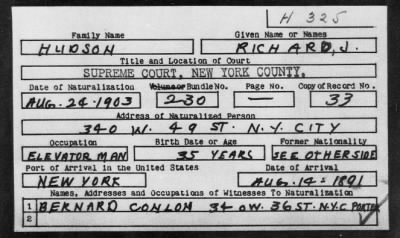 H 325
Family Name Given Name or Names
HUDSON RICHARD, J.
Title and Location of Court
SUPREME COURT, NEW YORK COUNTY.
Date of Naturalization Volume or Bundle No. Page No. Copy of Record No.
AUG. 24. 1903 230 — 33
Address of Naturalized Person
340 W. 49 ST. N.Y. CITY
Occupation Birth Date or Age Former Nationality
ELEVATOR MAN 35 YEARS SEE OTHERSIDE
Port of Arrival in the United States Date of Arrival
NEW YORK AUG. 14 = 1891
Names, Addresses and Occupations of Witnesses To Naturalization
1 BERNARD CONLON 34 OW. 36 ST. N.Y.C PORTER
2